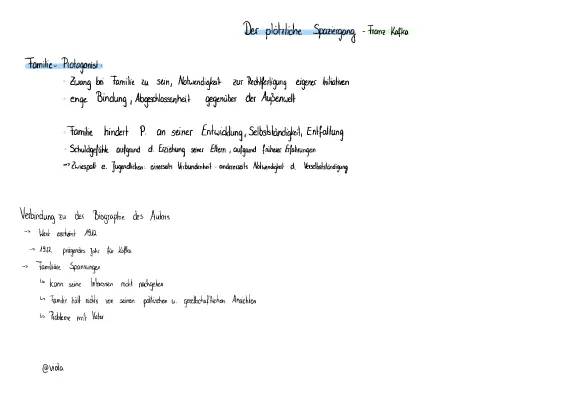 Der plötzliche Spaziergang - Franz Kafka
Familie - Protagonist
· Zwang bei Familie zu sein, Notwendigkeit zur Rechtfertigung eigener Initiativen
· enge Bindung, Abgeschlossenheit gegenüber der Außenwelt
· Familie hindert P. an seiner Entwicklung, Selbstständigkeit, Entfaltung
· Schuldgefühle aufgrund d. Erziehung seiner Eltern, aufgrund früherer Erfahrungen
→ Zwiespalt e. Jugendlichen: einerseits Verbundenheit andererseits Notwendigkeit d. Verselbstständigung
Verbindung zu der Biographie des Autors
→ Werk erscheint 1912
→ 1912 prägendes Jahr für Kafka
→ Familiäre Spannungen
↳ kann seine Interessen nicht nachgehen
↳ Familie hält nichts von seinen politischen u. gesellschaftlichen Ansichten
↳ Probleme mit Vater
@viola